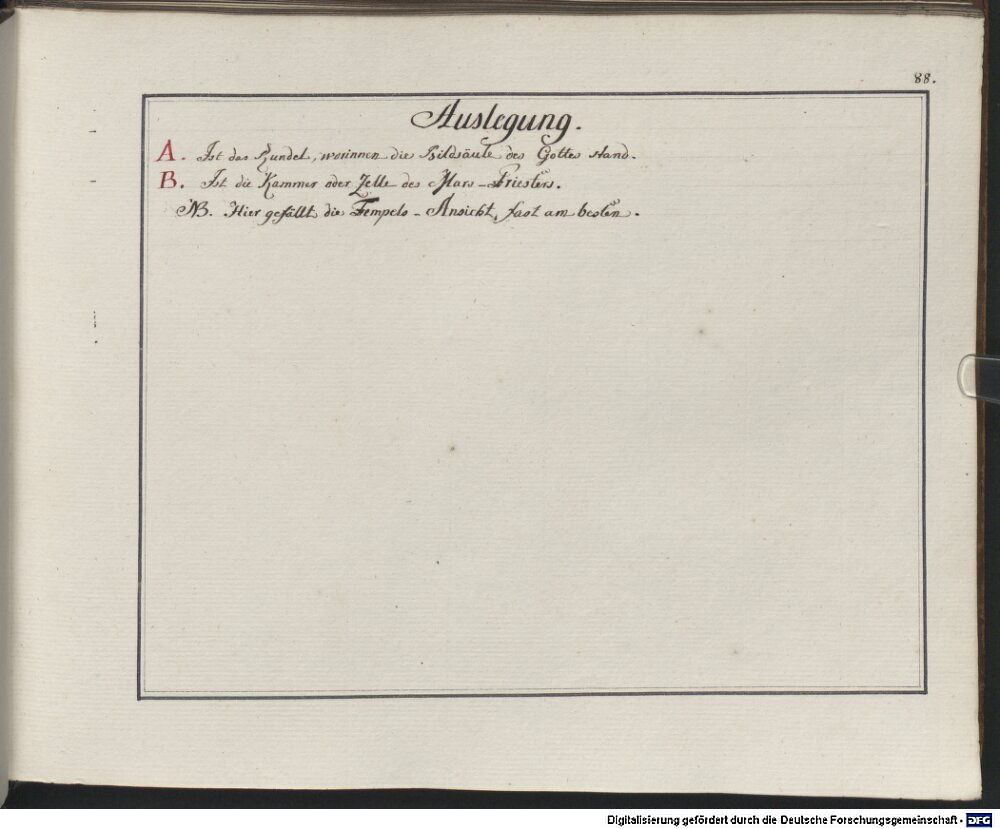 88.
Auslegung.
A. Ist das Rundel, worinnen die Bildsäule des Gottes stand.
B. Ist die Kammer oder Zelle des Mars-Priesters.
NB. Hier gefällt die Tempels-Ansicht, fast am besten.
Digitalisierung gefördert durch die Deutsche Forschungsgemeinschaft - DFG